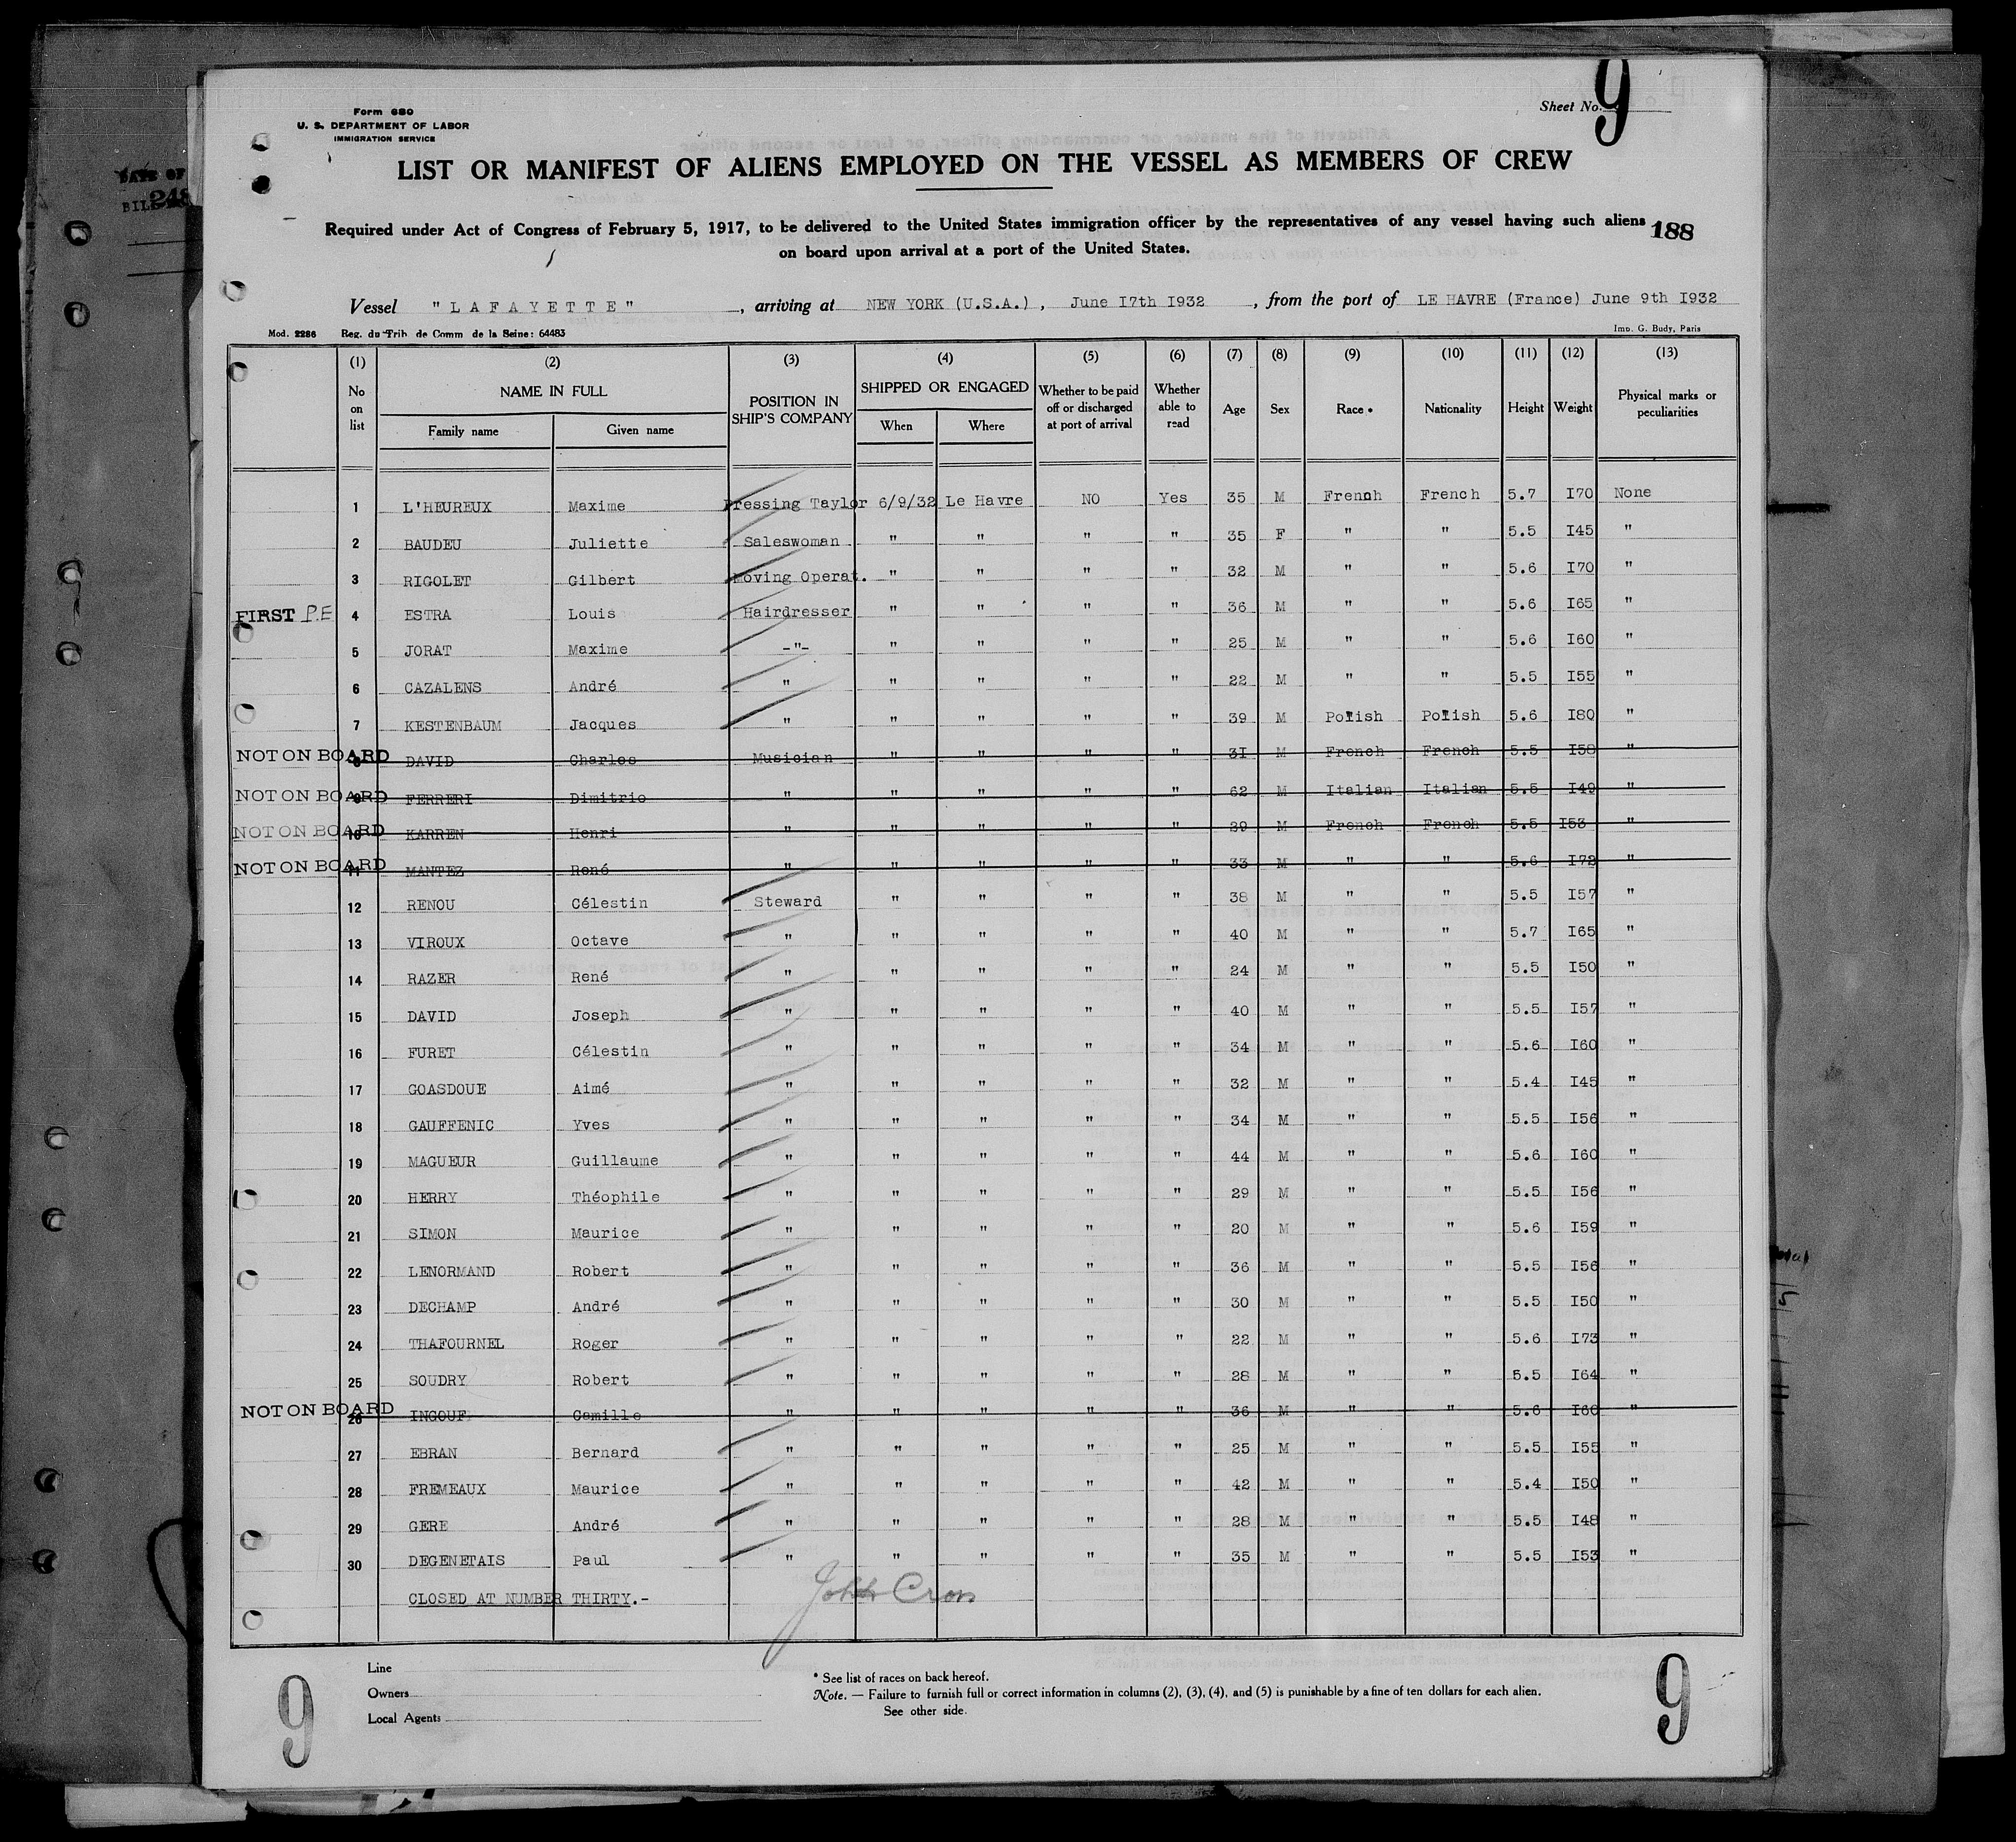 Form 680
U. S. DEPARTMENT OF LABOR
IMMIGRATION SERVICE
Sheet No. 9
LIST OR MANIFEST OF ALIENS EMPLOYED ON THE VESSEL AS MEMBERS OF CREW
Required under Act of Congress of February 5, 1917, to be delivered to the United States immigration officer by the representatives of any vessel having such aliens
on board upon arrival at a port of the United States.
188
Vessel "LAFAYETTE", arriving at NEW YORK (U.S.A.), June I7th I932, from the port of LE HAVRE (France) June 9th I932
Mod. 2286 Reg. du Trib. de Comm de la Seine: 64483 Imp. G. Budy, Paris
(1) (2) (3) (4) (5) (6) (7) (8) (9) (10) (11) (12) (13)
No on list NAME IN FULL POSITION IN SHIP'S COMPANY SHIPPED OR ENGAGED Whether to be paid off or discharged at port of arrival Whether able to read Age Sex Race * Nationality Height Weight Physical marks or peculiarities
Family name Given name When Where
1 L'HEUREUX Maxime Pressing Taylor 6/9/32 Le Havre NO Yes 35 M French French 5.7 I70 None
2 BAUDEU Juliette Saleswoman " " " " 35 F " " 5.5 I45 "
3 RIGOLET Gilbert Moving Operat. " " " " 32 M " " 5.6 I70 "
FIRST P.E 4 ESTRA Louis Hairdresser " " " " 36 M " " 5.6 I65 "
5 JORAT Maxime -"- " " " " 25 M " " 5.6 I60 "
6 CAZALENS André " " " " " 22 M " " 5.5 I55 "
7 KESTENBAUM Jacques " " " " " 39 M Polish Polish 5.6 I80 "
NOT ON BOARD 8 DAVID Charles Musician " " " " 3I M French French 5.5 I58 "
NOT ON BOARD 9 FERRERI Dimitrio " " " " " 62 M Italian Italian 5.5 I49 "
NOT ON BOARD 10 KARREN Henri " " " " " 29 M French French 5.5 I53 "
NOT ON BOARD 11 MANTEZ René " " " " " 33 M " " 5.6 I72 "
12 RENOU Célestin Steward " " " " 38 M " " 5.5 I57 "
13 VIROUX Octave " " " " " 40 M " " 5.7 I65 "
14 RAZER René " " " " " 24 M " " 5.5 I50 "
15 DAVID Joseph " " " " " 40 M " " 5.5 I57 "
16 FURET Célestin " " " " " 34 M " " 5.6 I60 "
17 GOASDOUE Aimé " " " " " 32 M " " 5.4 I45 "
18 GAUFFENIC Yves " " " " " 34 M " " 5.5 I56 "
19 MAGUEUR Guillaume " " " " " 44 M " " 5.6 I60 "
20 HERRY Théophile " " " " " 29 M " " 5.5 I56 "
21 SIMON Maurice " " " " " 20 M " " 5.6 I59 "
22 LENORMAND Robert " " " " " 36 M " " 5.5 I56 "
23 DECHAMP André " " " " " 30 M " " 5.5 I50 "
24 THAFOURNEL Roger " " " " " 22 M " " 5.6 I73 "
25 SOUDRY Robert " " " " " 28 M " " 5.5 I64 "
NOT ON BOARD 26 INGOUF Camille " " " " " 36 M " " 5.6 I60 "
27 EBRAN Bernard " " " " " 25 M " " 5.5 I55 "
28 FREMEAUX Maurice " " " " " 42 M " " 5.4 I50 "
29 GERE André " " " " " 28 M " " 5.5 I48 "
30 DEGENETAIS Paul " " " " " 35 M " " 5.5 I53 "
CLOSED AT NUMBER THIRTY.-
John Cron
Line
Owners
Local Agents
* See list of races on back hereof.
Note. — Failure to furnish full or correct information in columns (2), (3), (4), and (5) is punishable by a fine of ten dollars for each alien.
See other side.
9
9